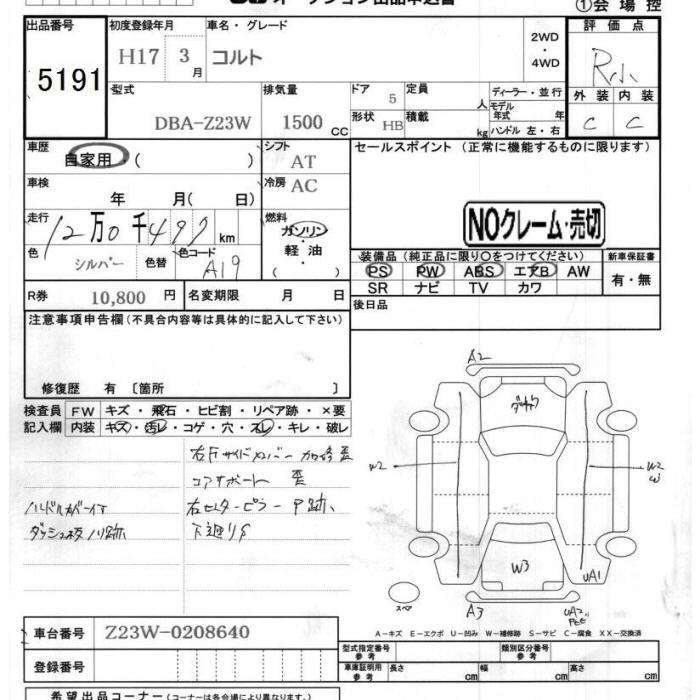 オークション出品申込書 ①会場控
出品番号 初度登録年月 車名・グレード 2WD・4WD 評価点
5191 H17 3月 コルト R小
型式 排気量 ドア 定員 ディーラー・並行 外装 内装
DBA-Z23W 1500CC 5 人 モデル年式 年 C C
形状 積載 HB kg ハンドル 左・右
車歴 シフト セールスポイント (正常に機能するものに限ります)
自家用・( ) AT
車検 冷房
年 月( 日) AC
走行 燃料 NOクレーム・売切
12万0千497km ガソリン・軽油( )
色 色替 色コード 装備品 (純正品に限り○をつけてください) 新車保証書
シルバー A19 PS PW ABS エアB AW 有・無
SR ナビ TV カワ
R券 10,800円 名変期限 月 日 後日品
注意事項申告欄 (不具合内容等は具体的に記入して下さい)
修復歴 有 〔箇所 〕
検査員記入欄 FW キズ・飛石・ヒビ割・リペア跡・×要
内装 キズ・汚レ・コゲ・穴・スレ・キレ・破レ
右Fサイドメンバー
コアサポート 歪
右センターピラー 跡
下廻りS
ハンドルカバー付
ダッシュ板ノリ跡
A2
W2 W2
W
W3
UA1
A3 UA2
スペア
A-キズ E-エクボ U-凹み W-補修跡 S-サビ C-腐食 XX-交換済
車台番号 Z23W-0208640
登録番号
型式指定番号 参考 類別区分番号 参考
車庫証明用 参考 長さ cm 幅 cm 高さ cm
希望出品コーナー (コーナーは各会場により異なります。)